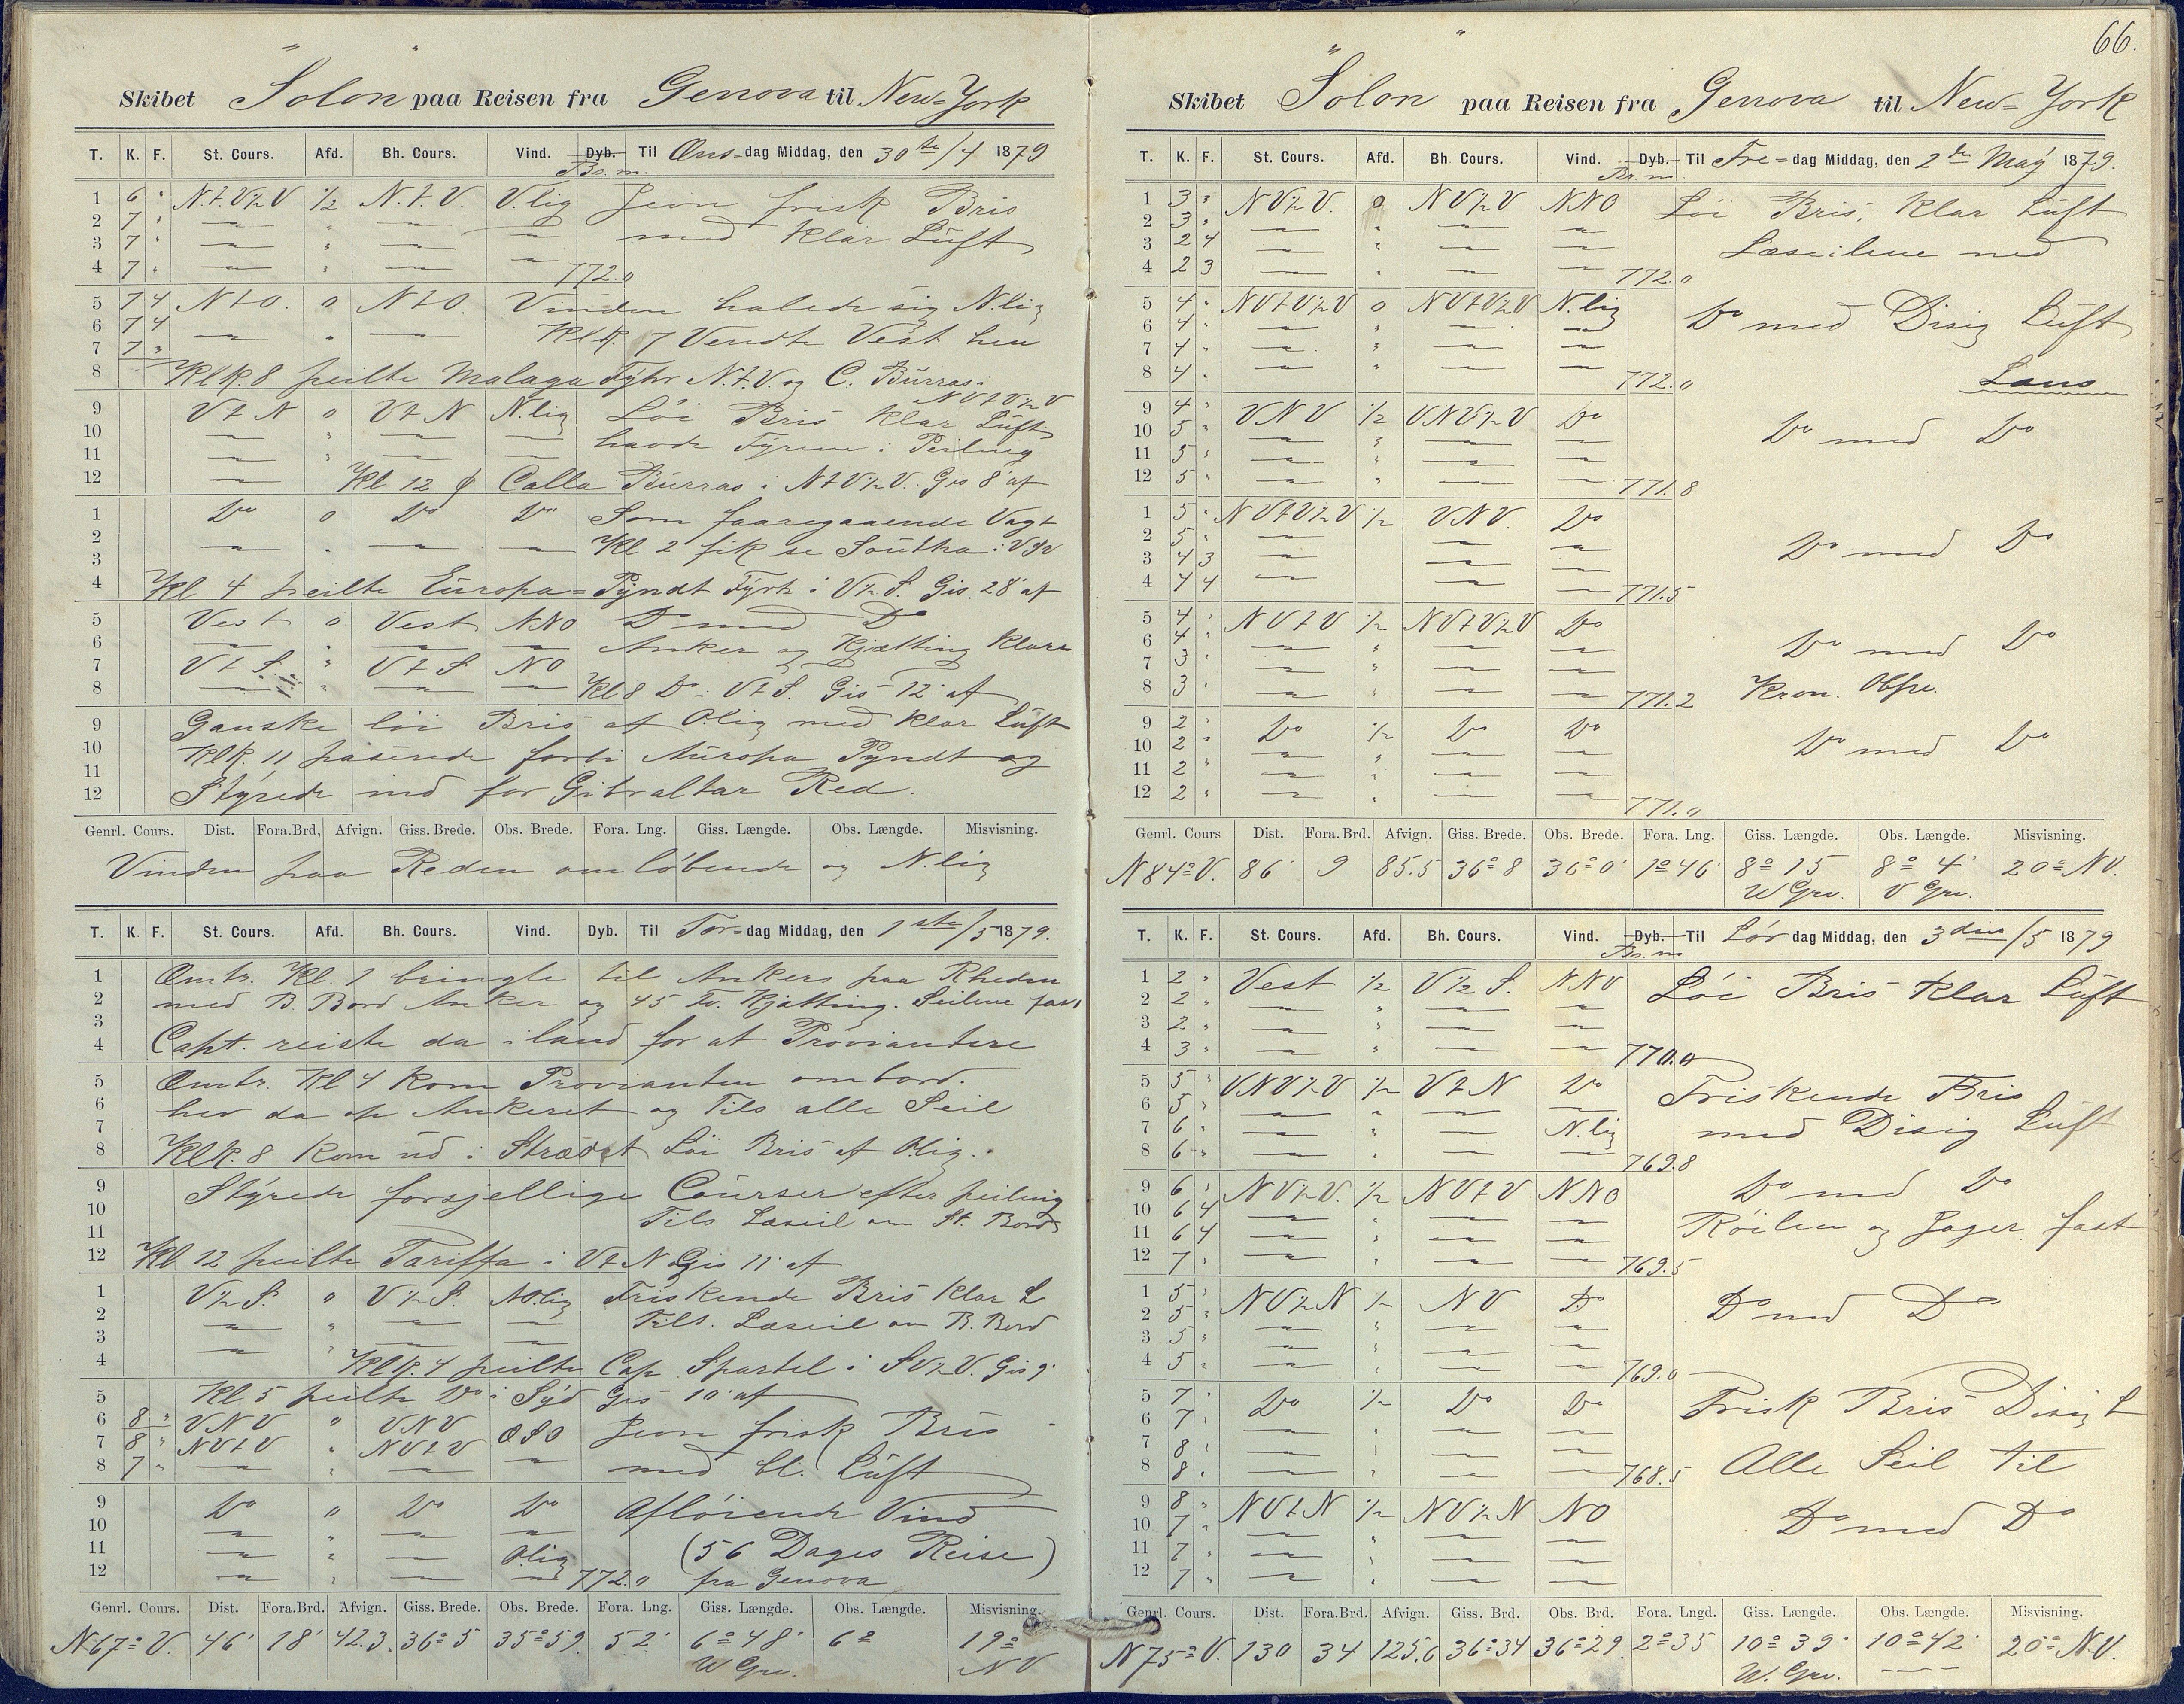 Skibet "Solon" paa Reisen fra Genova til New=York
T. K. F. St. Cours. Afd. Bh. Cours. Vind. Dyb. Til Ons=dag Middag, den 30te/4 1879
Br. m.
1 6 " N.t.V½V ½ N.t.V. V.lig Jevn frisk Bris
2 7 " — " — — med Klar Luft
3 7 " — " — —
4 7 " — " — — 772.0
5 7 4 NtO. 0 NtO. Vinden halede sig N.lig
6 7 4 — " — Klk. 7 Vendte Vest hen
7 7 "
8 Klk. 8 peilte Malaga Fyhr N.t.V. og C. Burras i
NVtV½V
9 VtN 0 VtN N.lig Löi Bris Klar Luft
10 — " — — havde Fyrene i Peiling
11 — " — —
12 — Kl 12 Calla Burras i NtV½V. Gis 8' af
1 Do 0 Do Do Som foaregaaende Vagt
2 — " — — Kl 2 fik se
3
4 Kl 4 peilte Europa=Pyndt Fyrh i V½S. Gis. 28' af
5 Vest 0 Vest NNO Do med Do
6 — " — — Anker og Kjætting Klare
7 VtS. " VtS NO
8 — " — — Kl 8 Do i VtS. Gis 12' af
9 Ganske löi Bris af O.lig med Klar Luft
10 Klk. 11 paserede forbi Auropa Pyndt og
11
12 Styrede ind for Gibraltar Red.
Genrl. Cours. Dist. Fora.Brd. Afvign. Giss. Brede. Obs. Brede. Fora. Lng. Giss. Længde. Obs. Længde. Misvisning.
Vinden paa Reden omlöbende og N.lig
T. K. F. St. Cours. Afd. Bh. Cours. Vind. Dyb. Til Tors=dag Middag, den 1ste/5 1879.
1 Omtr. Kl. 1 bringte til Ankers paa Rheden
2 med B. Bord Anker og 45 Fv. Kjætting. Seilene fast
3
4 Capt. reiste da i land for at Proviantere
5 Omtr. Kl 4 kom Provianten ombord.
6 hev da op Ankeret og Tils alle Seil
7
8 Klk. 8 kom ud i Strædet Löi Bris af O.lig.
9 Styrede forsjellige Courser efter peiling
10 Tils Læseil om St. Bord
11
12 Kl 12 peilte Tariffa i VtN Gis 11' af
1 V½S. 0 V½S. NO.lig Friskende Bris Klar L
2 — " — — Tils. Læseil om B. Bord
3 — " — —
4 Klk. 4 peilte Cap Spartel i SV½V. Gis 9'
5 Kl 5 peilte Do i Syd Gis 10' af
6 8 " VNV " VNV OSO Jevn frisk Bris
7 8 " NVtV " NVtV
8 7 " — " — — med bl. Luft
9 Do " Do Do Aflöiende Vind
10 — " — —
11 — " — O.lig (56 Dages Reise)
12 — " — — 772.0 fra Genova
Genrl. Cours. Dist. Fora.Brd. Afvign. Giss. Brede. Obs. Brede. Fora. Lng. Giss. Længde. Obs. Længde. Misvisning.
N67°V. 46' 18' 42.3 36°5 35°59 52' 6°48' 6° 19°
W Grv. NV
66.
Skibet "Solon" paa Reisen fra Genova til New=York
T. K. F. St. Cours. Afd. Bh. Cours. Vind. Dyb. Til Fre=dag Middag, den 2den May 1879.
Br. m.
1 3 " NV½V. 0 NV½V NNO Löi Bris, Klar Luft
2 3 " — " — —
3 2 4 — " — — Læseilene ned
4 2 3 — " — — 772.0
5 4 " NVtV½V 0 NVtV½V N.lig Do med Disig Luft
6 4 " — " — —
7 4 " — " — —
8 4 " — " — — 772.0 Laus
9 4 " VNV ½ VNV½V Do Do med Do
10 5 " — " — —
11 5 " — " — —
12 5 " — " — — 771.8
1 5 " NVtV½V ½ VNV. Do
2 5 " — — — Do med Do
3 4 3 — — —
4 4 4 — — — 771.5
5 4 " NVtV ½ NVtV½V Do
6 4 " — " — — Do med Do
7 3 " — " — —
8 3 " — " — — 771.2 Kron. Obsr.
9 2 " Do ½ Do Do
10 2 " — " — — Do med Do
11 2 " — " — —
12 2 " — " — — 771.0
Genrl. Cours Dist. Fora.Brd. Afvign. Giss. Brede. Obs. Brede. Fora. Lng. Giss. Længde. Obs. Længde. Misvisning.
N84°V. 86' 9 85.5 36°8 36°0' 1°46' 8°15 8°4' 20° NV.
W Grv. V Grv.
T. K. F. St. Cours. Afd. Bh. Cours. Vind. Dyb. Til Lör dag Middag, den 3die/5 1879
Br. m
1 2 " Vest ½ V½S. NNO Löi Bris Klar Luft
2 2 " — " — —
3 2 " — " — —
4 3 " — " — — 770.0
5 5 " VNV½V ½ VtN Do Friskende Bris
6 5 " — " — —
7 6 " — " — N.lig med Disig Luft
8 6 " — " — — 769.8
9 6 " NV½V. ½ NVtV NNO Do med Do
10 6 4 — " — — Röilen og Jager fast
11 6 4 — " — —
12 7 " — " — — 769.5
1 5 " NV½N ½ NV Do Do med Do
2 5 " — " — —
3 5 " — " — —
4 5 " — " — — 769.0
5 7 " Do ½ Do Do Frisk Bris Disig L
6 7 " — " — —
7 8 " — " — —
8 8 " — " — — 768.5 Alle Seil til
9 8 " NVtN ½ NV½N NO
10 7 " — " — — Do med Do
11 7 " — " — —
12 7 " — " — —
Genrl. Cours. Dist. Fora.Brd. Afvign. Giss. Brd. Obs. Brd. Fora. Lngd. Giss. Længde. Obs. Længde. Misvisning.
N75°V. 130 34 125.6 36°34 36°29. 2°35 10°39' 10°42' 20° N.V.
W. Grv. — —